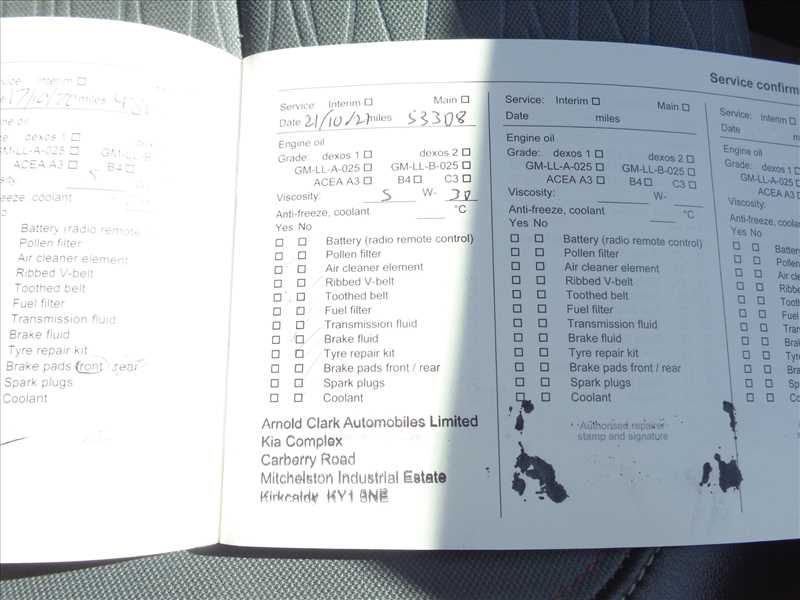 Service confirm
Service: Interim
17/10/ miles
engine oil
dexos 1
GM-LL-A-025 GM-LL-B
ACEA A3 B4
Battery (radio remote
Pollen filter
Air cleaner element
Ribbed V-belt
Toothed belt
Fuel filter
Transmission fluid
Brake fluid
Tyre repair kit
Brake pads front / rear
Spark plugs
Coolant
Service: Interim Main
Date 21/10/21 miles 53308
Engine oil
Grade: dexos 1 dexos 2
GM-LL-A-025 GM-LL-B-025
ACEA A3 B4 C3
Viscosity: 5 W- 30
Anti-freeze, coolant °C
Yes No
Battery (radio remote control)
Pollen filter
Air cleaner element
Ribbed V-belt
Toothed belt
Fuel filter
Transmission fluid
Brake fluid
Tyre repair kit
Brake pads front / rear
Spark plugs
Coolant
Arnold Clark Automobiles Limited
Kia Complex
Carberry Road
Mitchelston Industrial Estate
Kirkcaldy KY1 3NE
Service: Interim Main
Date miles
Engine oil
Grade: dexos 1 dexos 2
GM-LL-A-025 GM-LL-B-025
ACEA A3 B4 C3
Viscosity: W-
Anti-freeze, coolant °C
Yes No
Battery (radio remote control)
Pollen filter
Air cleaner element
Ribbed V-belt
Toothed belt
Fuel filter
Transmission fluid
Brake fluid
Tyre repair kit
Brake pads front / rear
Spark plugs
Coolant
Authorised repairer
stamp and signature
Service: Interim
Date miles
Engine oil
Grade: dexos 1
GM-LL-A-025
ACEA A3
Viscosity:
Anti-freeze, coolant
Yes No
Batte
Pollen
Air cle
Ribbed
Toothe
Fuel f
Trans
Brak
Tyre
Brak
Spar
Co